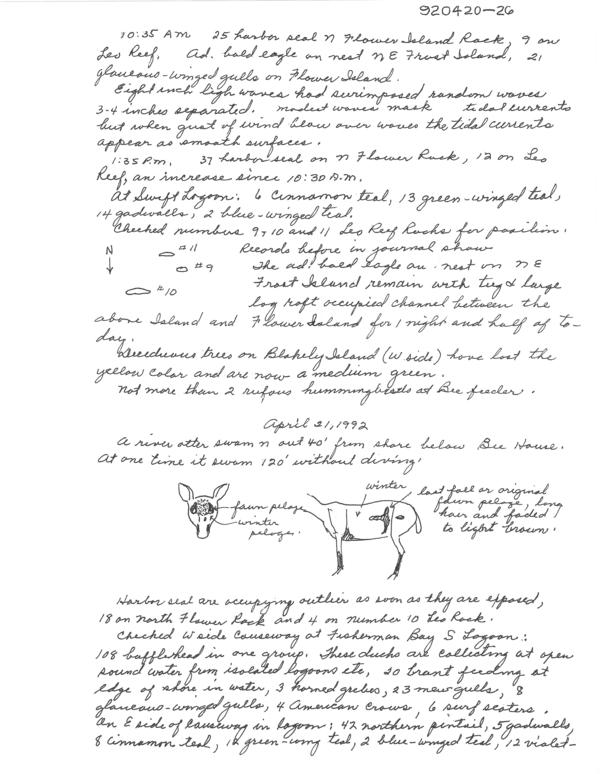 920420-26
10:35 AM 25 harbor seal N Flower Island Rock, 9 on
Leo Reef. Ad. bald eagle on nest NE Frost Island, 21
glaucous-winged gulls on Flower Island.
Eight inch high waves had surimposed random waves
3-4 inches separated. modest waves mask tidal currents
but when gust of wind blow over waves the tidal currents
appear as smooth surfaces.
1:35 P.M. 37 harbor seal on N Flower Rock, 12 on Leo
Reef, an increase since 10:30 A.M.
At Swift Lagoon: 6 cinnamon teal, 13 green-winged teal,
14 gadwalls, 2 blue-winged teal.
Checked numbers 9, 10 and 11 Leo Reef Rocks for position.
N #11 Records before in journal show
#9 The ad. bald eagle on nest on NE
#10 Frost Island remain with tug & large
log raft occupied channel between the
above Island and Flower Island for 1 night and half of to-
day.
Deciduous trees on Blakely Island (W side) have lost the
yellow color and are now a medium green.
Not more than 2 rufous hummingbirds at Bee feeder.
April 21, 1992
A river otter swam N out 40' from shore below Bee House.
At one time it swam 120' without diving!
fawn pelage
winter pelage.
winter
last fall or original
fawn pelage, long
hair and faded
to light brown.
Harbor seal are occupying outlier as soon as they are exposed,
18 on North Flower Rock and 4 on number 10 Leo Rock.
Checked W side Causeway at Fisherman Bay S Lagoon:
108 bufflehead in one group. These ducks are collecting at open
sound water from isolated lagoons etc, 20 brant feeding at
edge of shore in water, 3 horned grebes, 23 mew gulls, 8
glaucous-winged gulls, 4 American crows, 6 surf scoters.
On E side of causeway in lagoon: 42 northern pintail, 5 gadwalls,
8 cinnamon teal, green-wing teal, 2 blue-winged teal, 12 violet-